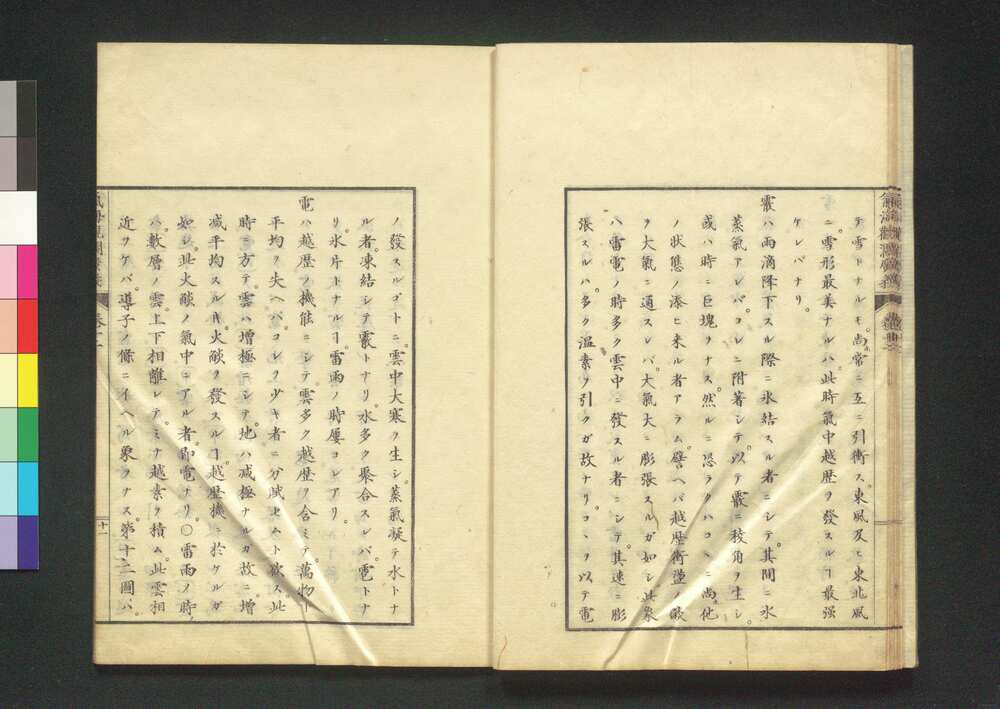 テ雪トナルモ。尚常ニ互ニ引衝ス。東風及ヒ東北風
ニ雪形最美ナルハ。此時氣中越歴ヲ發スルヿ最强
ケレバナリ。
霰ハ雨滴降下スル際ニ氷結スル者ニシテ。其間ニ氷
蒸氣アレバ。コレニ附著シテ。以テ霰ニ稜角ヲ生シ。
或ハ時ニ巨塊ヲナス。然ルニ恐ラクハコヽニ尚他
ノ状態ノ添ヒ来ル者アラム。譬ヘバ越歴衝盪ノ
ヲ大氣ニ通スレバ。大氣大ニ膨張スルガ如シ。此象
ハ雷電ノ時多ク雲中ニ發スル者ニシテ。其速ニ膨
張スルハ。多ク温素ヲ引クガ故ナリ。コヽヲ以テ電
ノ發スルゴトニ。雲中大寒ヲ生シ。蒸氣凝テ水トナ
ル者。凍結シテ霰トナリ。水多ク聚合スレバ。雹トナ
リ。氷片トナルヿ。雷雨ノ時屢コレアリ。
電ハ越歴ノ機能ニシテ。雲多ク越歴ヲ含ミテ。萬物ト
平均ヲ失ヘバ。コレヲ少キ者ニ分賦セムト欲ス。此
時ニ方テ。雲ハ増極ニシテ。地ハ減極ナルカ故ニ。増
減平均スル𪜈。火燄ヲ發スルヿ。越歴機ニ於ケルガ
如シ。此火燄ノ氣中ニアル者。即電ナリ。〇雷雨ノ時。
ハ。數層ノ雲。上下相離レテ。ミナ越素ヲ積ム。此雲相
近ヅケバ。導子ノ條ニイヘル象ヲナス。第十二圖ハ。
十一